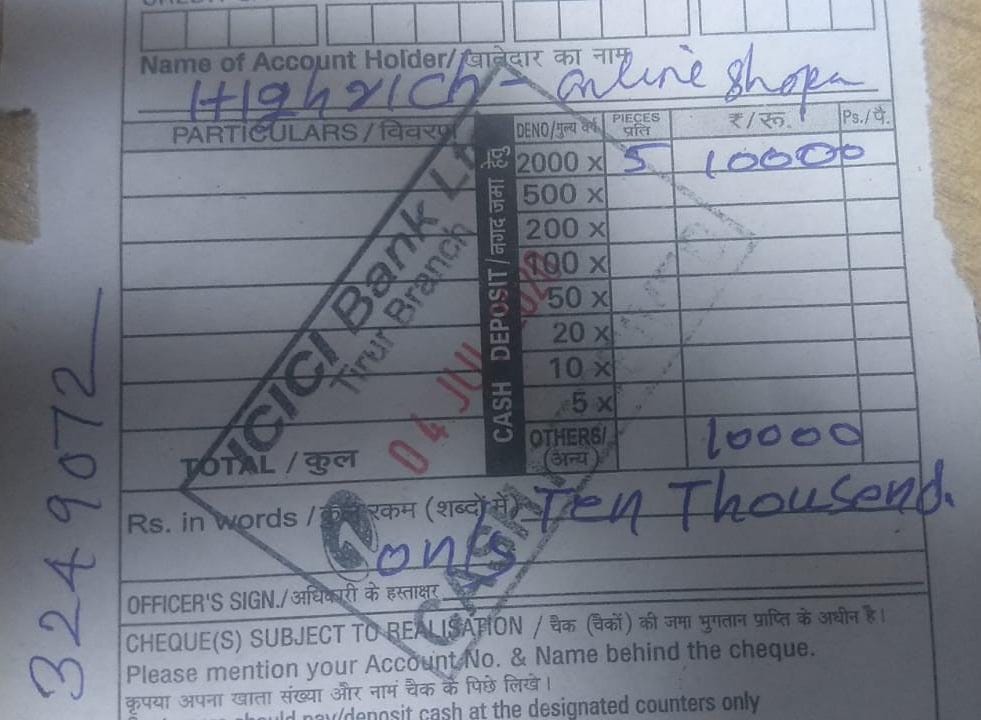 Name of Account Holder/ खातेदार का नाम
Highrich - online shopn
PARTICULARS / विवरण
DENO/मूल्य वर्ग PIECES प्रति ₹/रू. Ps./पै.
2000 x 5 10000
500 x
200 x
100 x
50 x
20 x
10 x
5 x
OTHERS/ (अन्य) 10000
CASH DEPOSIT / नगद जमा हेतु
TOTAL / कुल
ICICI Bank Ltd
Tirur Branch
04 JUL 2020
CASH
Rs. in words / कुल रकम (शब्दों में) Ten Thousend.
only
OFFICER'S SIGN./अधिकारी के हस्ताक्षर
CHEQUE(S) SUBJECT TO REALISATION / चैक (चैकों) की जमा भुगतान प्राप्ति के अधीन है।
Please mention your Account No. & Name behind the cheque.
कृपया अपना खाता संख्या और नाम चैक के पिछे लिखे।
should pay/deposit cash at the designated counters only
3249072